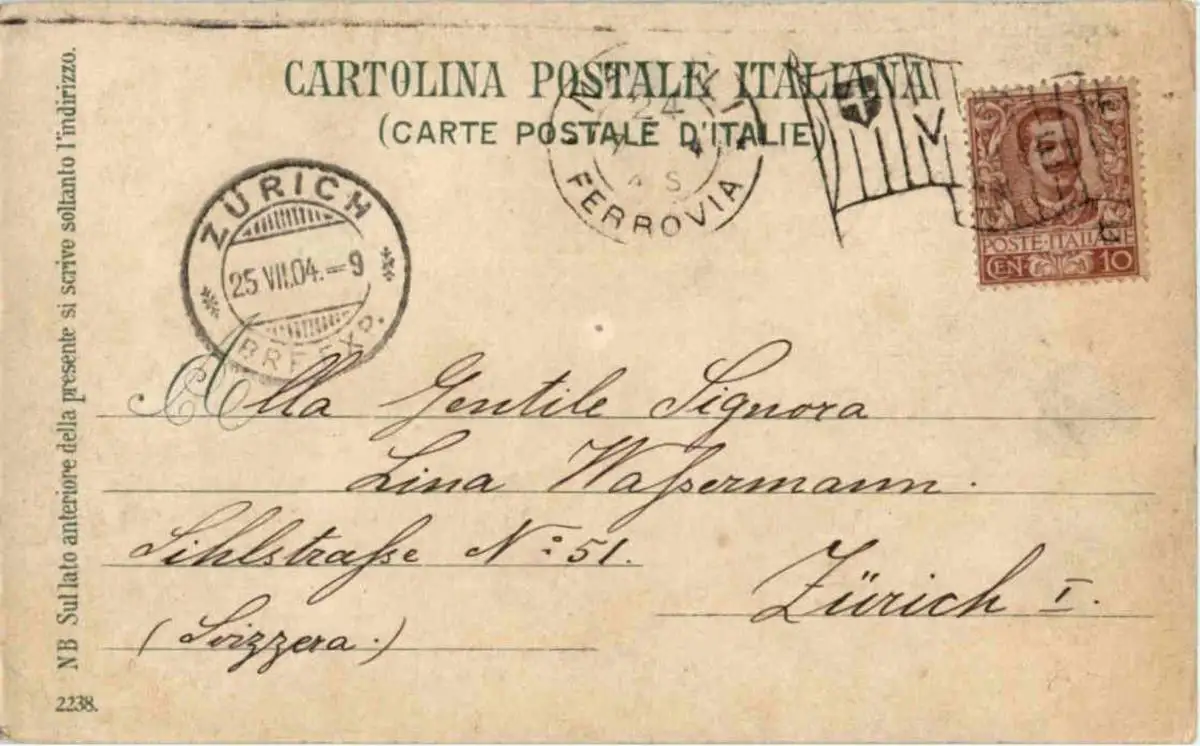 CARTOLINA POSTALE ITALIANA
(CARTE POSTALE D'ITALIE)
24
FERROVIA
V
POSTE·ITALIANE
CEN 10
ZÜRICH
25 VII.04.–9
BRF.EXP.
Alla Gentile Signora
Lina Waſsermann.
Sihlstraſse N.º 51.
Zürich I.
(Svizzera.)
NB Sul lato anteriore della presente si scrive soltanto l'indirizzo.
2238.